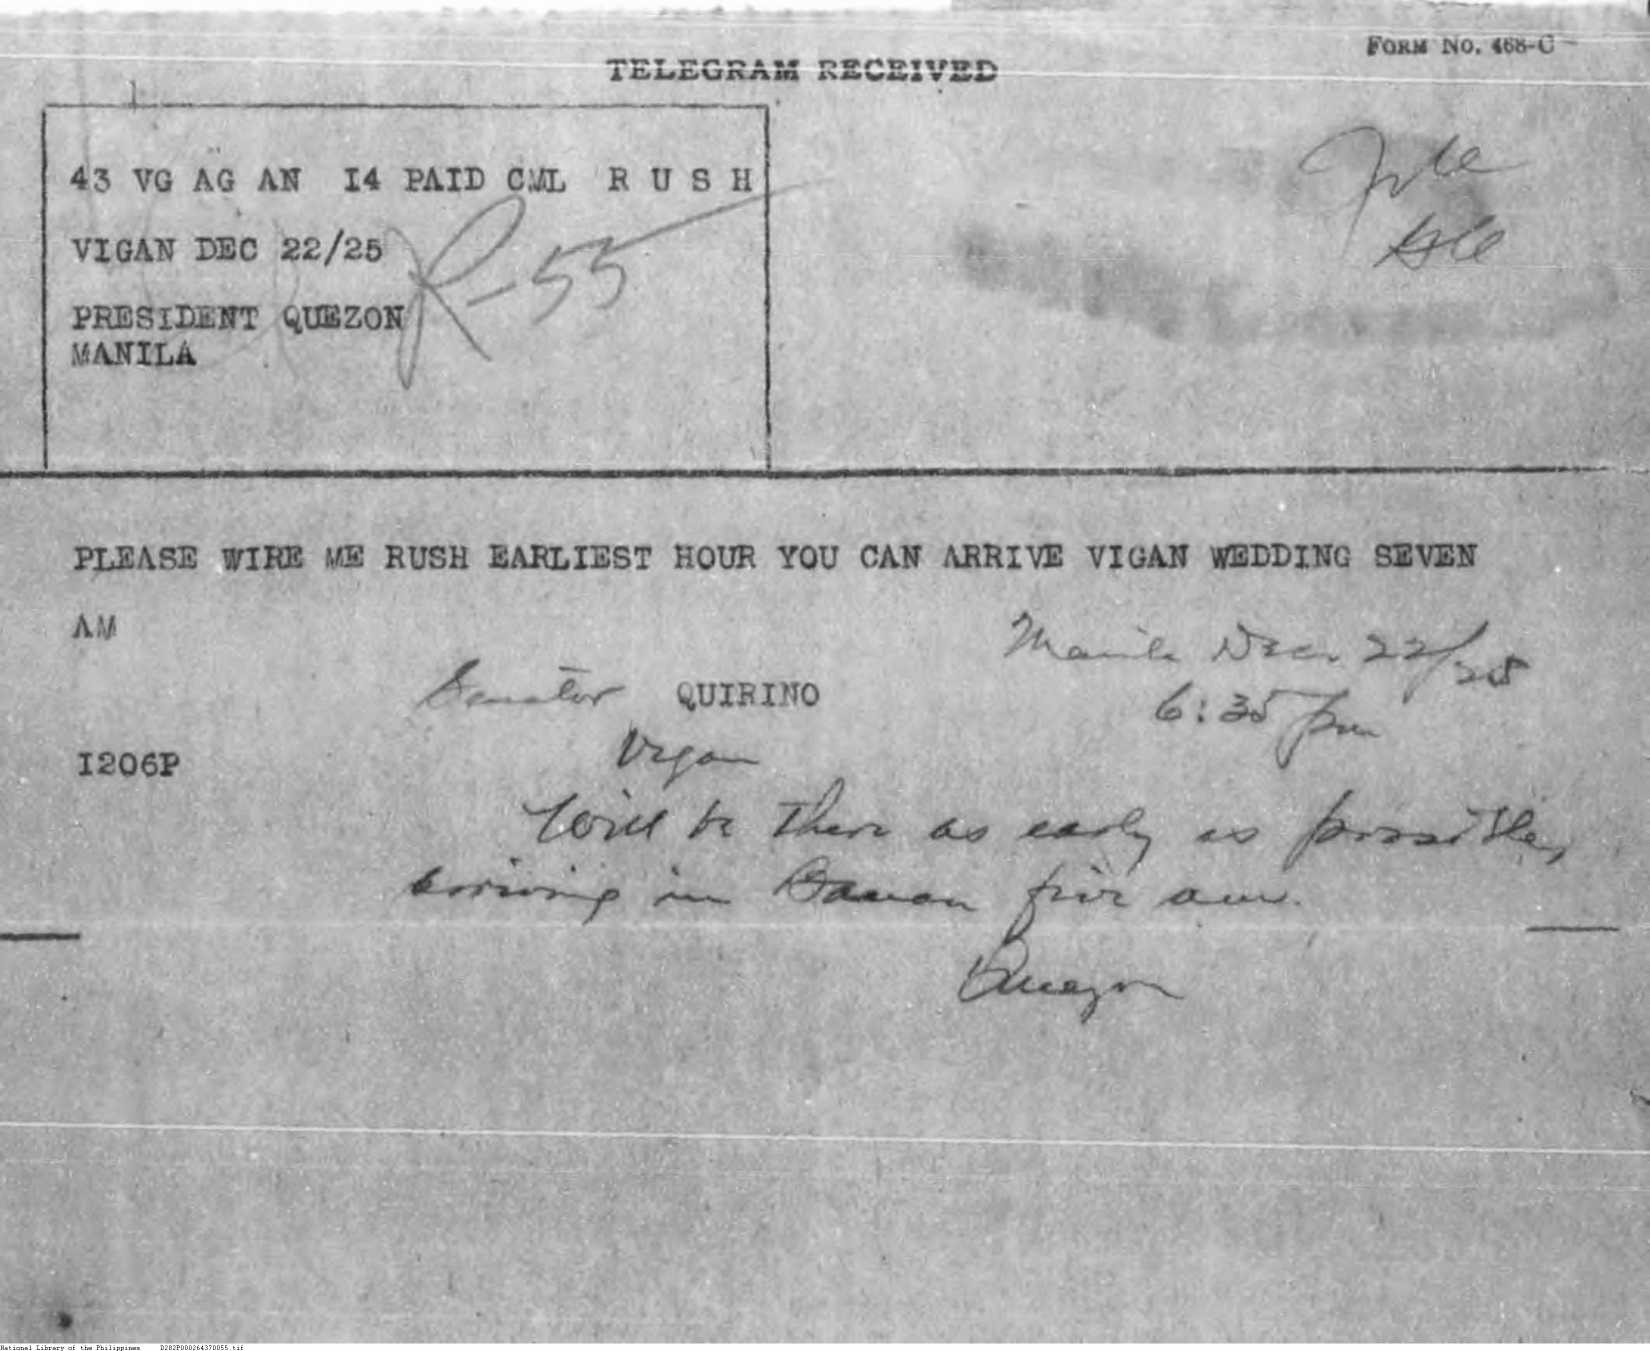 FORM NO. 468-C
TELEGRAM RECEIVED
43 VG AG AN I4 PAID CML R U S H
File
VIGAN DEC 22/25
R-55
PRESIDENT QUEZON
MANILA
PLEASE WIRE ME RUSH EARLIEST HOUR YOU CAN ARRIVE VIGAN WEDDING SEVEN
AM
Manila Dec. 22/25
Senator QUIRINO
6:35 pm
Vigan
I206P
Will be there as early as possible,
arriving in five am.
Quezon
National Library of the Philippines D282P000264370055.tif